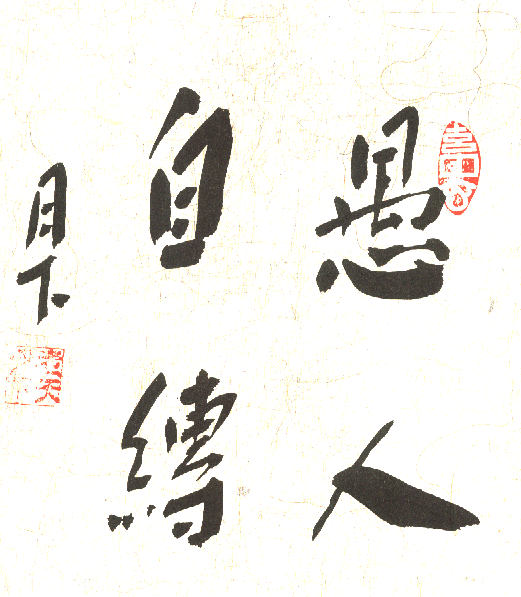 愚人
自縛
月下